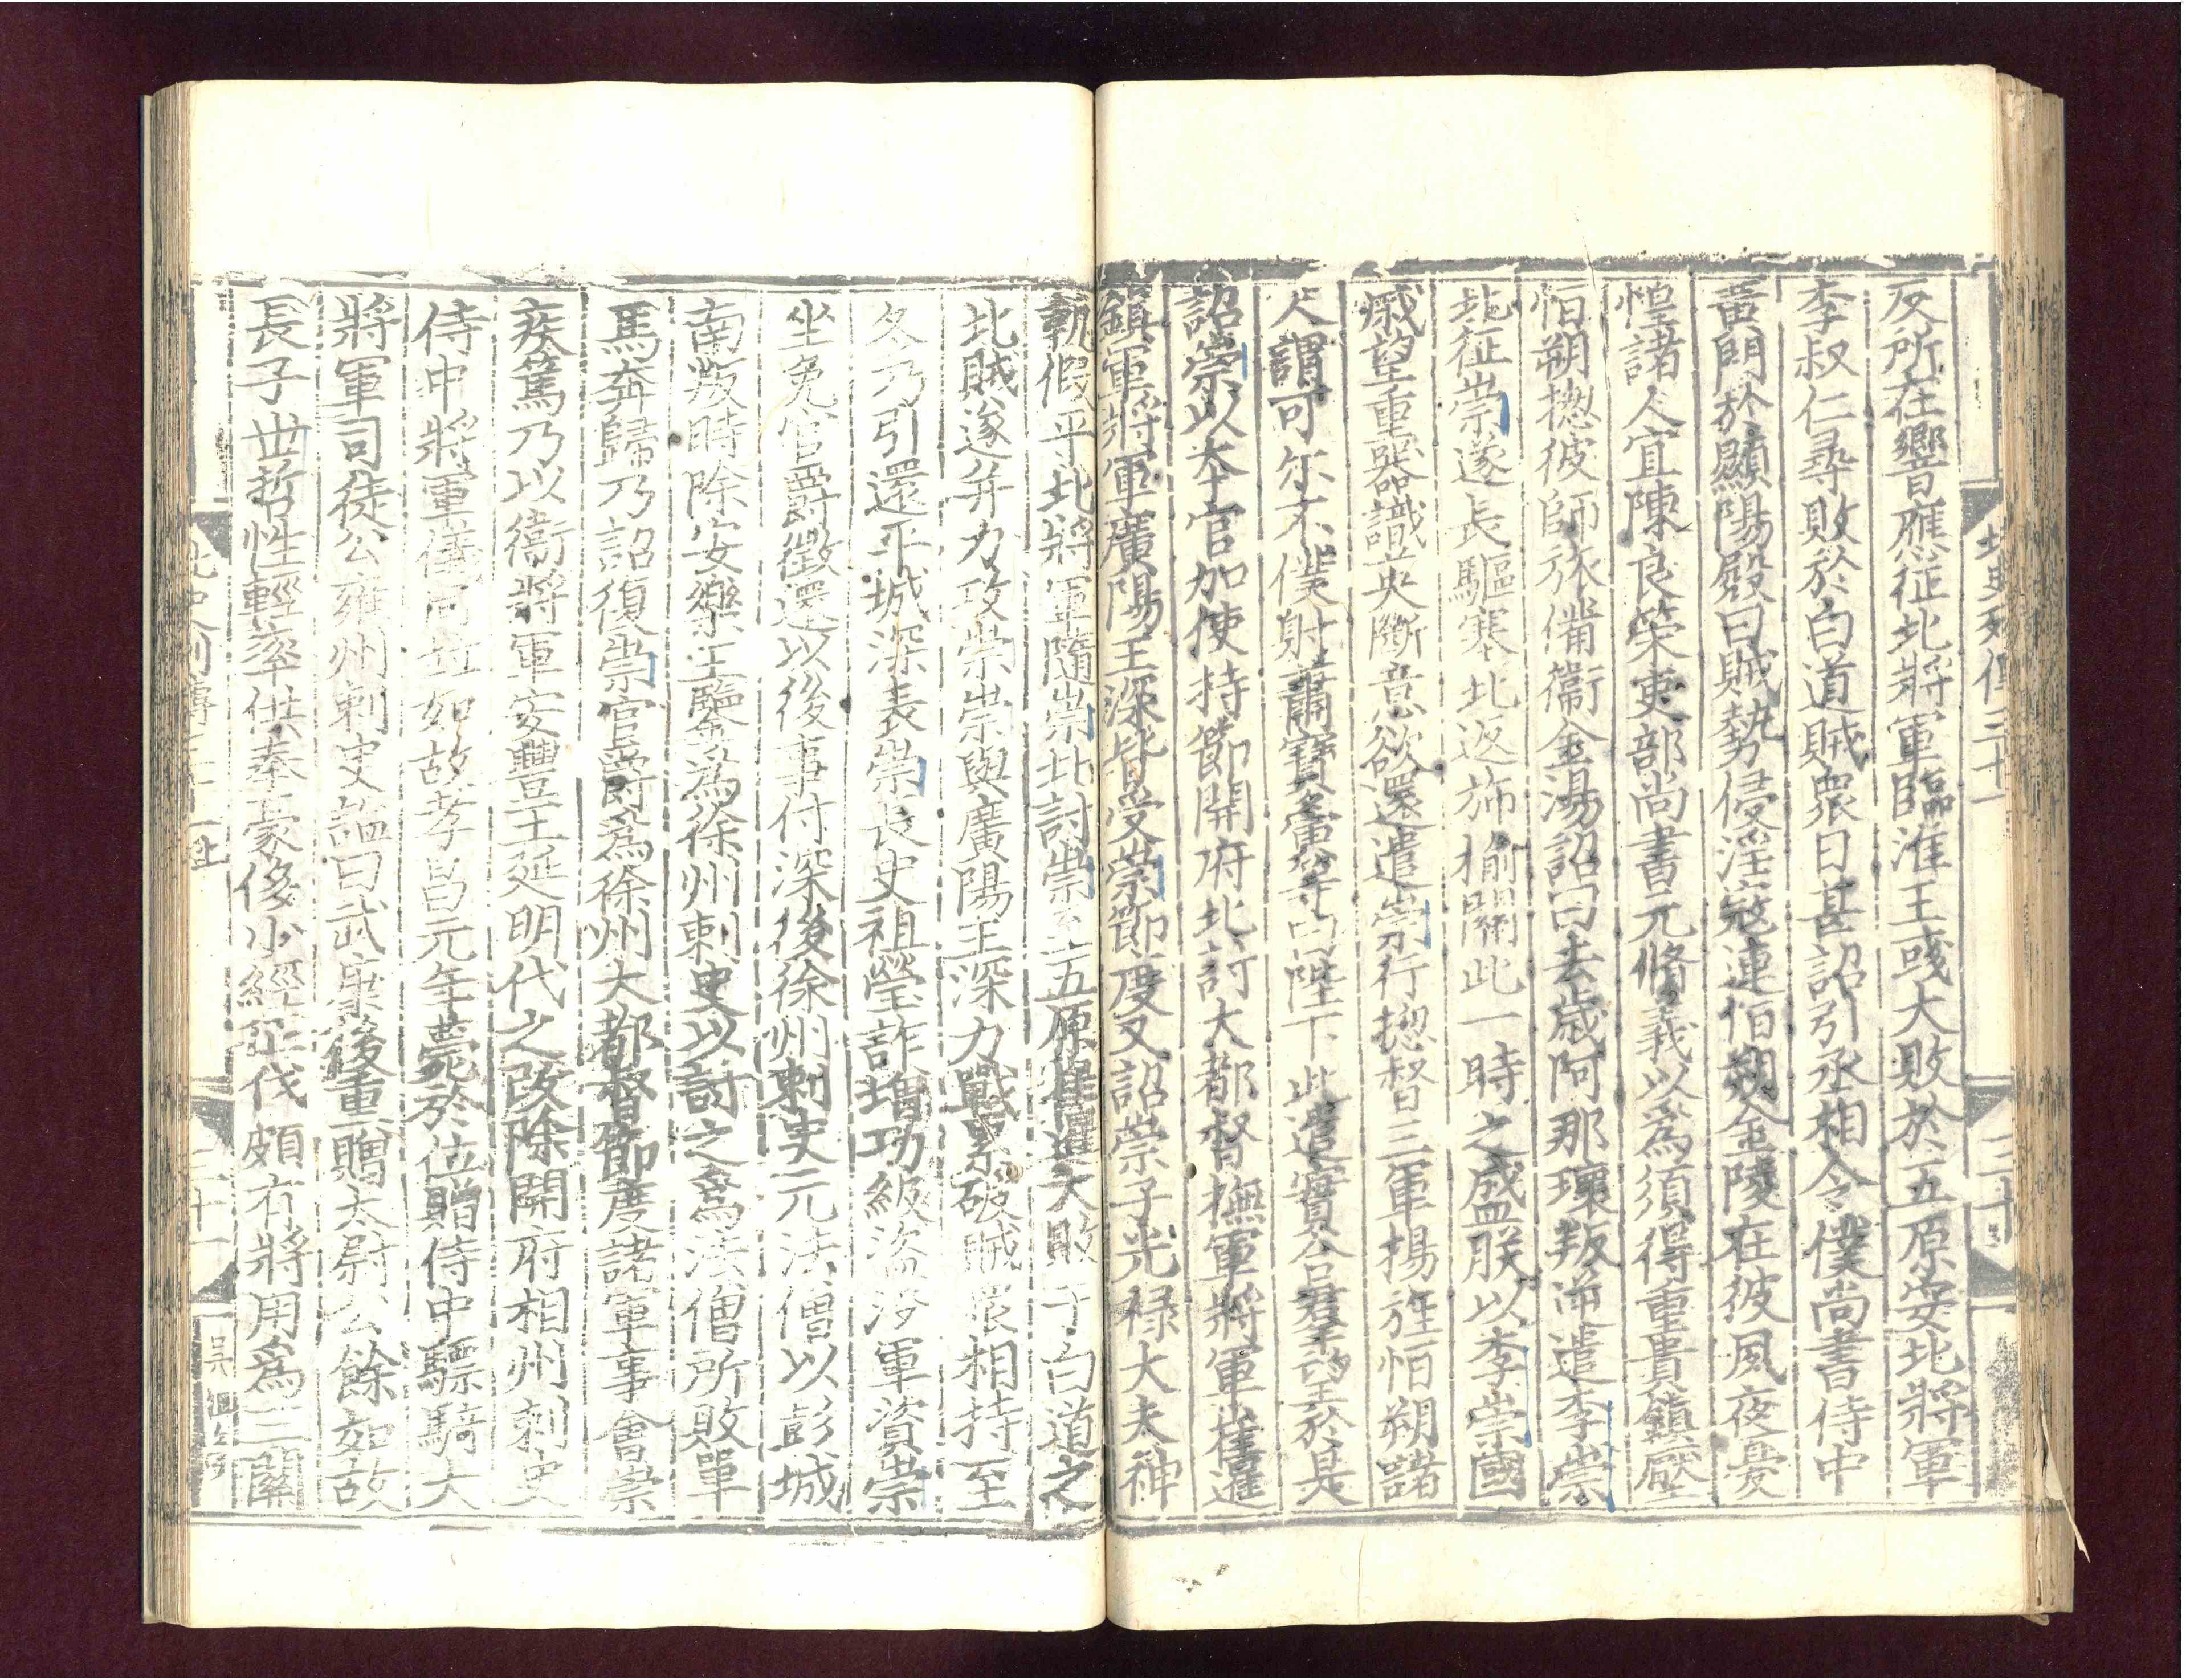 北史列傳三十一
三十
反所在響應征北將軍臨淮王彧大敗於五原安北將軍
李叔仁尋敗於白道賊衆日甚詔引丞相令僕尚書侍中
黃門於顯陽殿曰賊勢侵淫寇連恒朔金陵在彼夙夜憂
惶諸人宜陳良策吏部尚書元脩義以爲須得重貴鎮壓
恒朔揔彼師旅備衞金湯詔曰去歲阿那瓌叛逆遣李崇
北征崇遂長驅塞北返旆榆關此一時之盛朕以李崇國
戚望重器識英斷意欲還遣崇行揔督三軍揚旌恒朔諸
人謂可尔不僕射蕭寶夤等曰陛下此遣實合羣望於是
詔崇以本官加使持節開府北討大都督撫軍將軍崔暹
鎮軍將軍廣陽王深皆受崇節度又詔崇子光禄大夫神
軌假平北將軍隨崇北討崇至五原崔暹大敗于白道之
北賊遂并力攻崇崇與廣陽王深力戰累破賊衆相持至
冬乃引還平城深表崇長史祖瑩詐增功級盜沒軍資崇
坐免官爵徵還以後事付深後徐州刺史元法僧以彭城
南叛時除安樂王鑒爲徐州刺史以討之爲法僧所敗單
馬奔歸乃詔復崇官爵爲徐州大都督節度諸軍事會崇
疾篤乃以衞將軍安豐王延明代之改除開府相州刺史
侍中將軍儀同並如故孝昌元年薨於位贈侍中驃騎大
將軍司徒公雍州刺史謚曰武康後重贈太尉公餘如故
長子世哲性輕率供奉豪侈少經征伐頗有將用爲三關
北史列傳三十一
三十一
吳